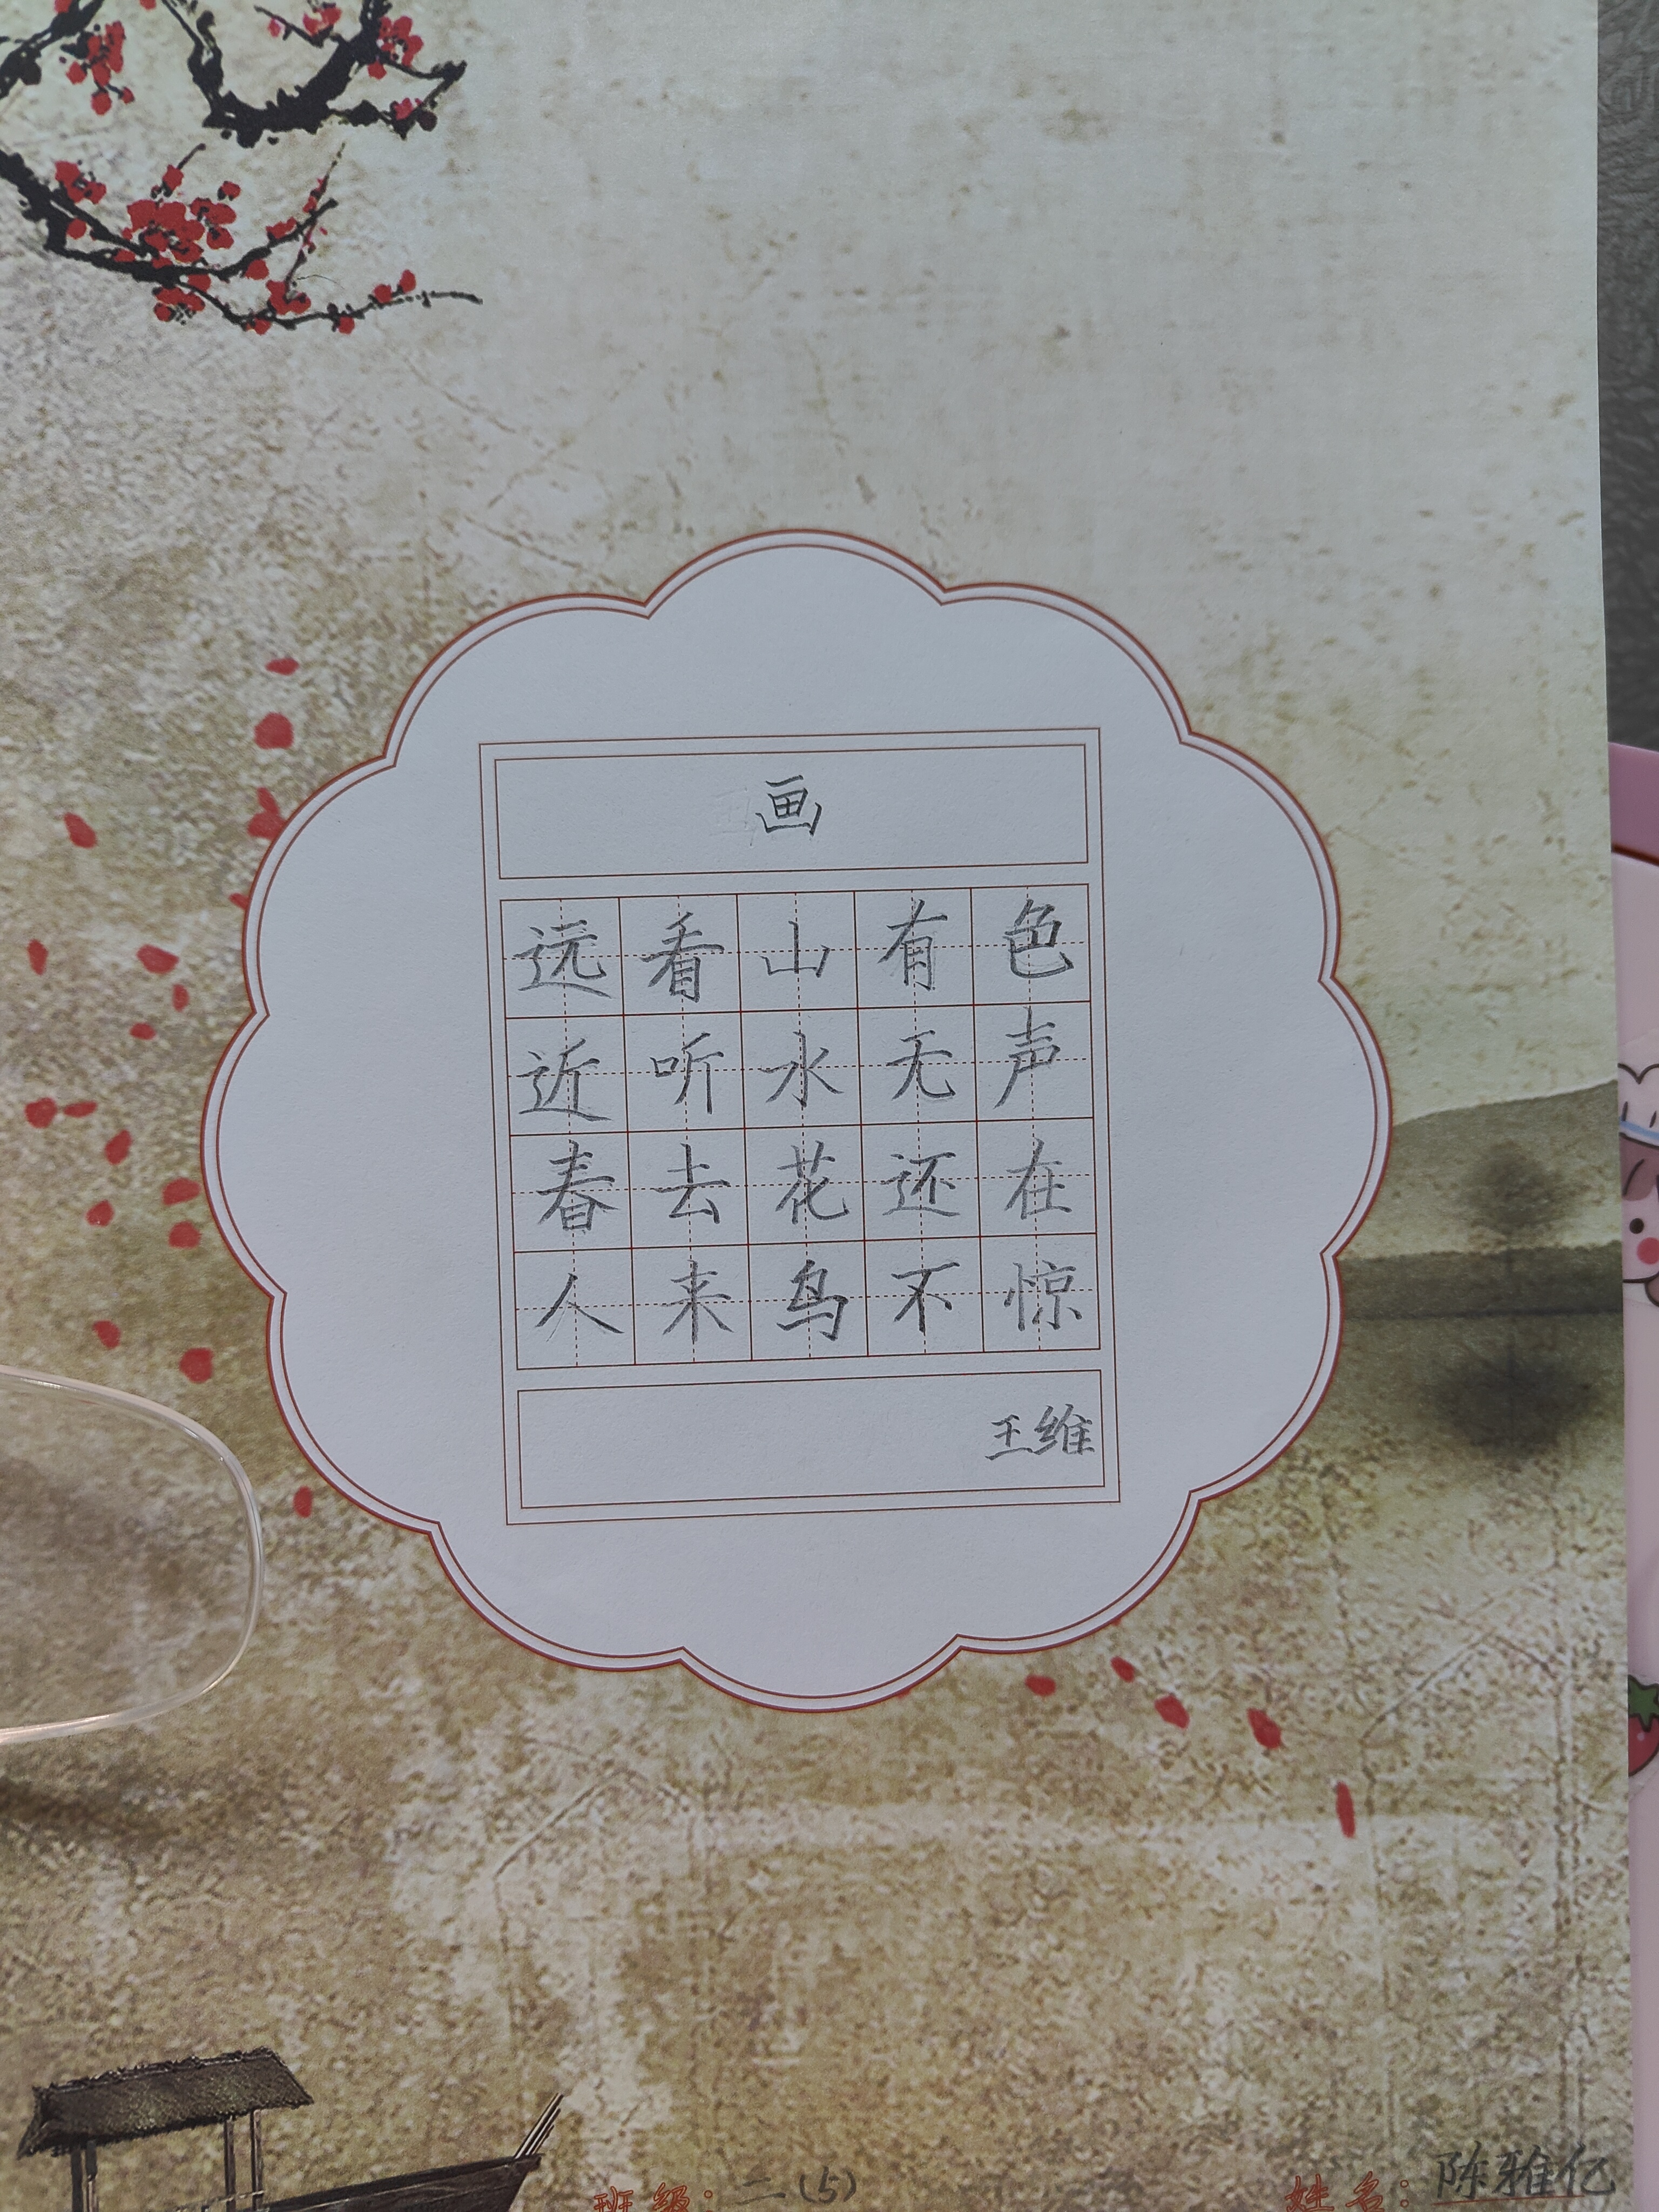 画
远看山有色
近听水无声
春去花还在
人来鸟不惊
王维
班级：二（5） 姓名：陈雅亿